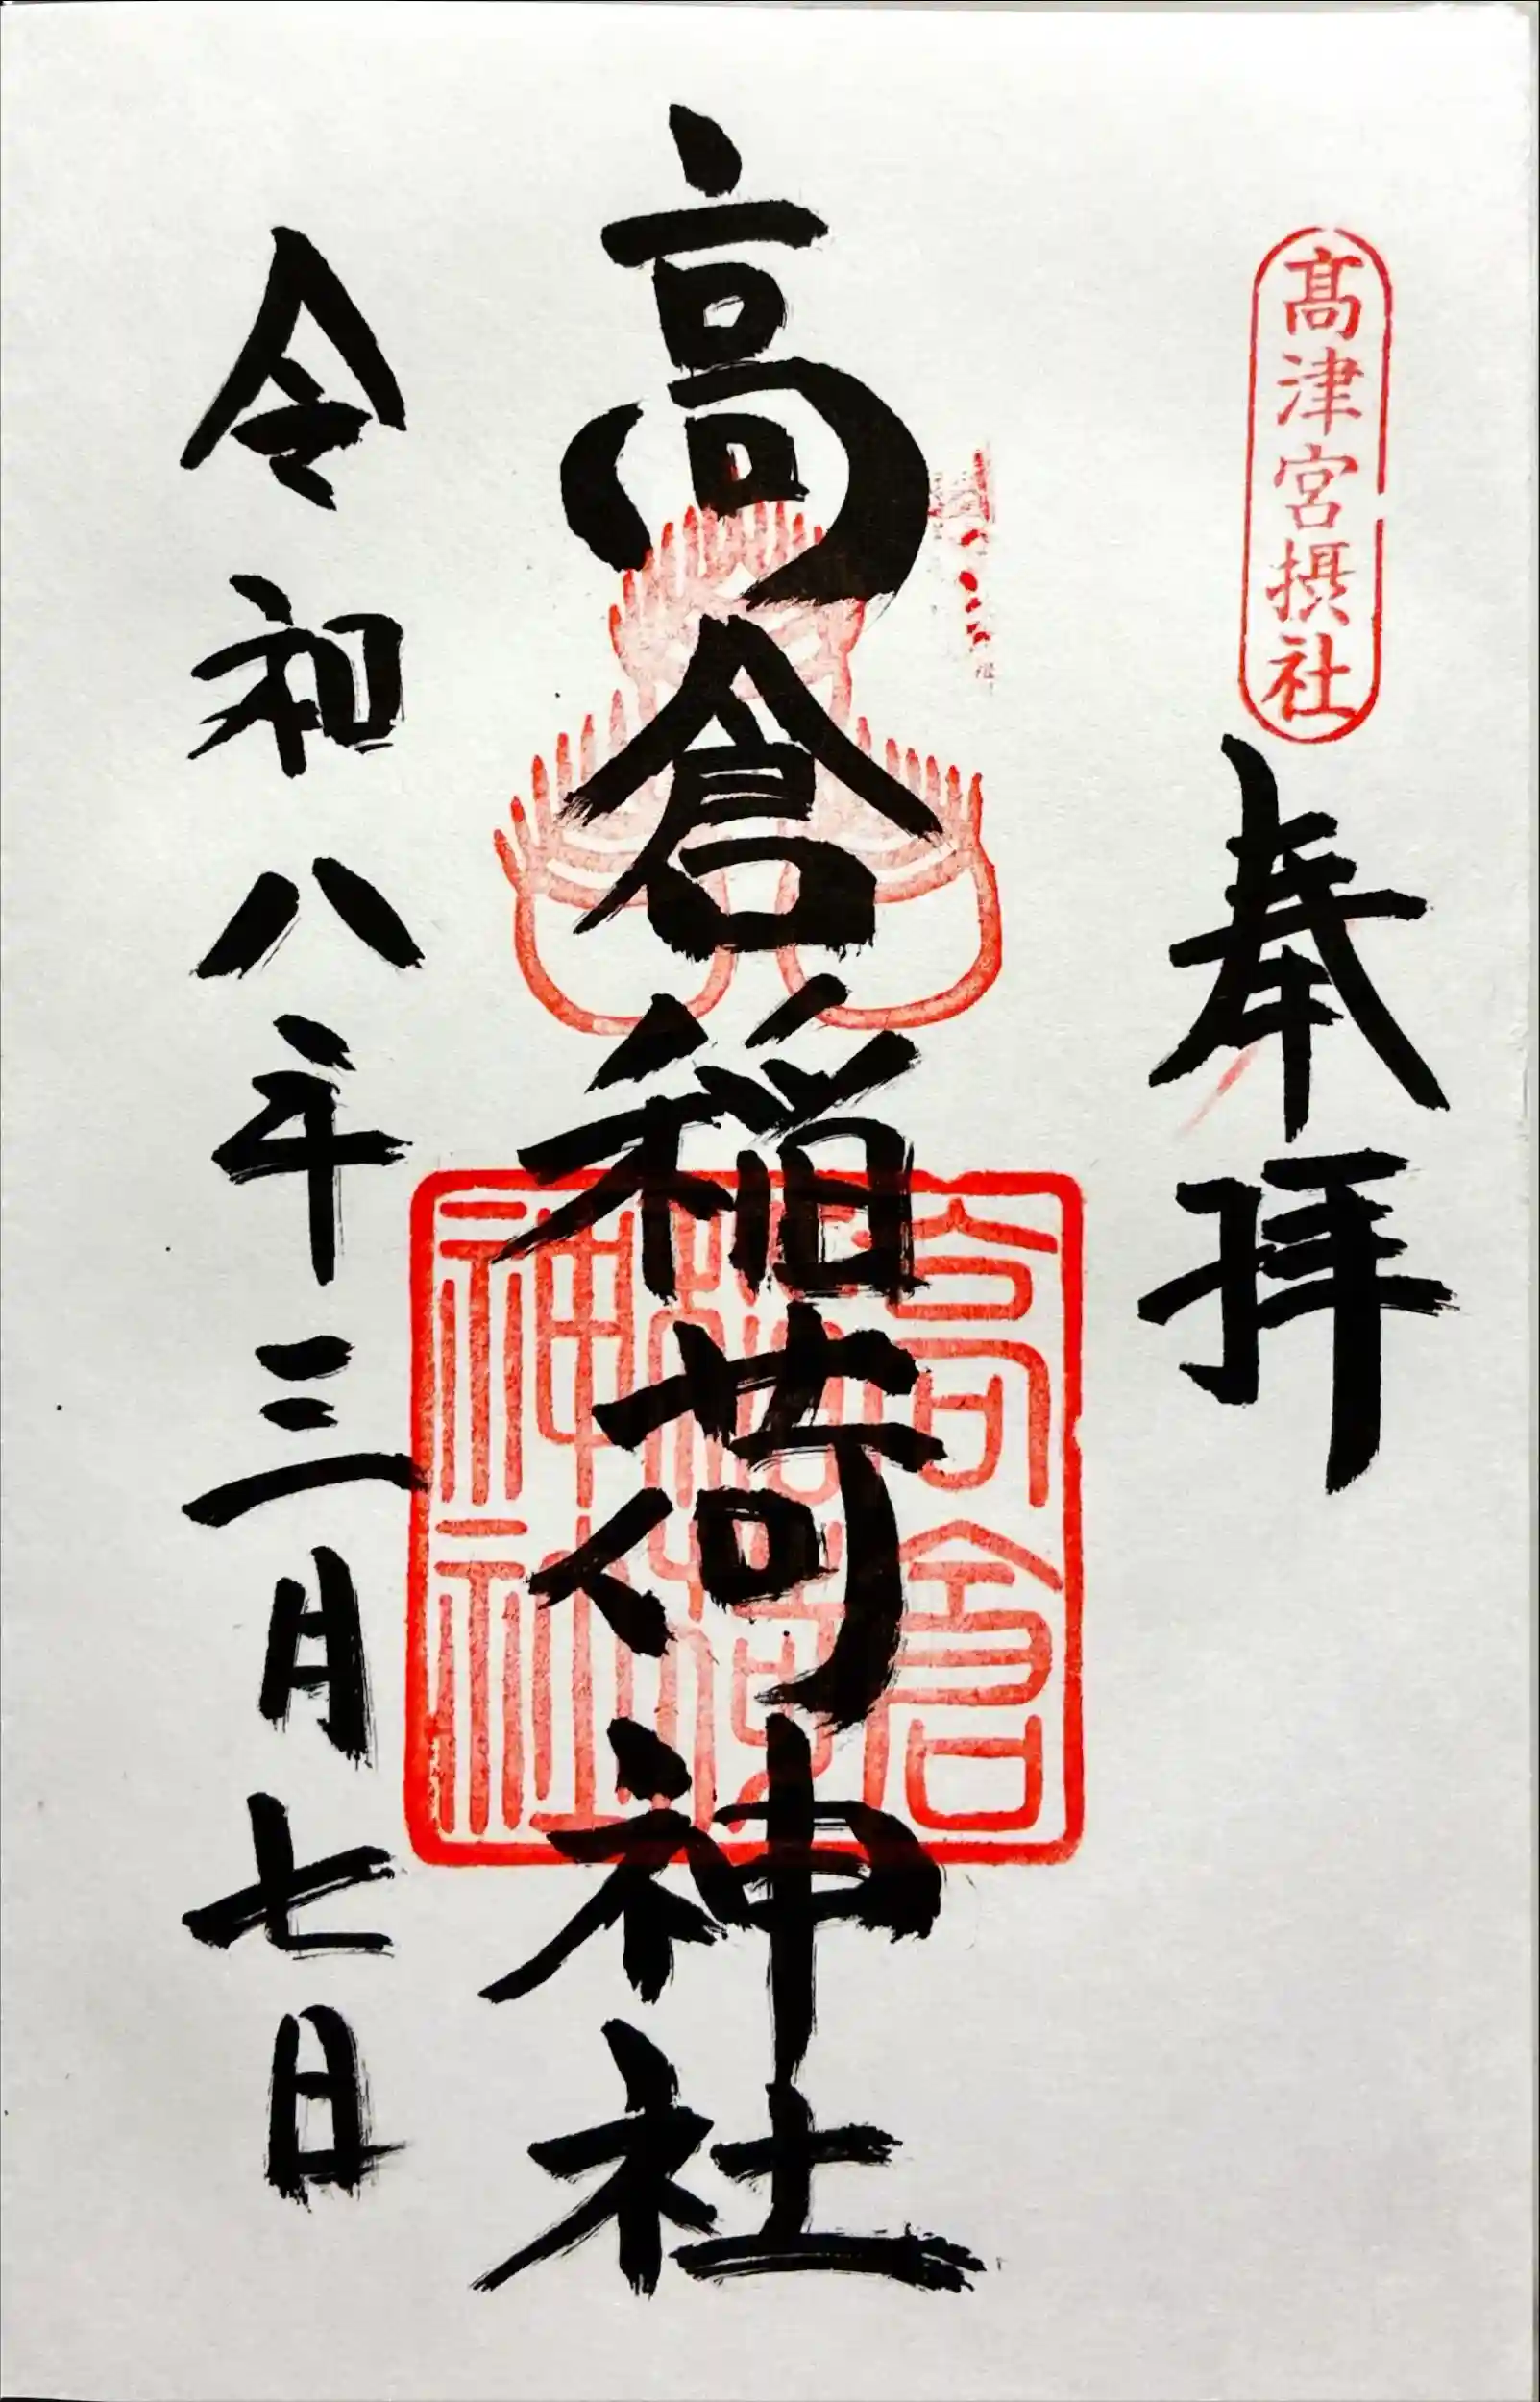 髙津宮摂社
奉拝
高倉稲荷神社
高倉
稲荷
神社
令和八年三月七日